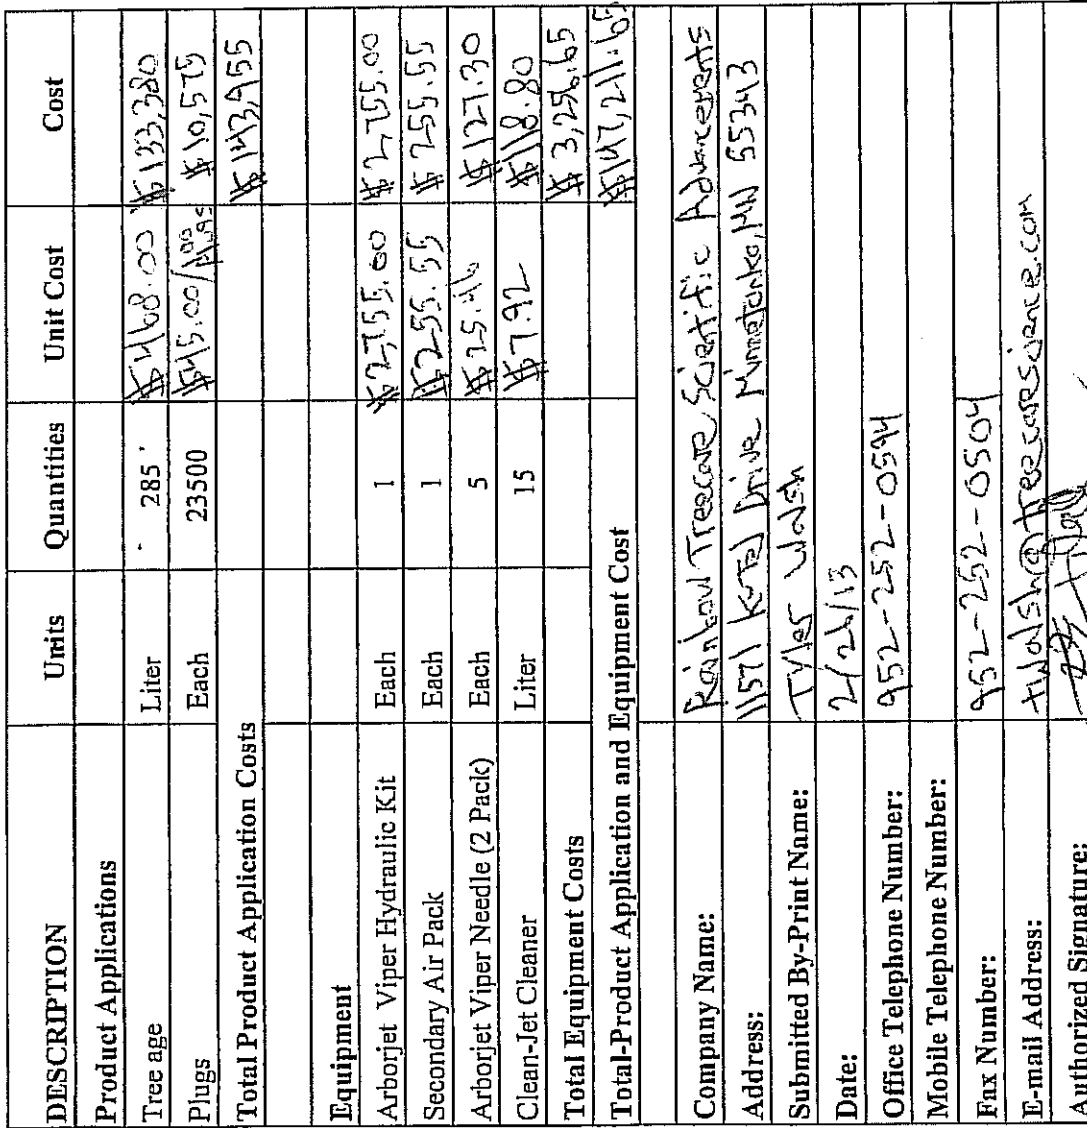 DESCRIPTION Units Quantities Unit Cost Cost
Product Applications
Tree age Liter 285 $468.00 $133,380
Plugs Each 23500 $45.00/100 Plugs $10,575
Total Product Application Costs $143,955
Equipment
Arborjet Viper Hydraulic Kit Each 1 $2,755.00 $2,755.00
Secondary Air Pack Each 1 $255.55 $255.55
Arborjet Viper Needle (2 Pack) Each 5 $25.46 $127.30
Clean-Jet Cleaner Liter 15 $7.92 $118.80
Total Equipment Costs $3,256.65
Total-Product Application and Equipment Cost $147,211.65
Company Name: Rainbow Treecare Scientific Advancements
Address: 11571 K-Tel Drive Minnetonka, MN 55343
Submitted By-Print Name: Tyler Walsh
Date: 2/26/13
Office Telephone Number: 952-252-0594
Mobile Telephone Number:
Fax Number: 952-252-0504
E-mail Address: twalsh@treecarescience.com
Authorized Signature: